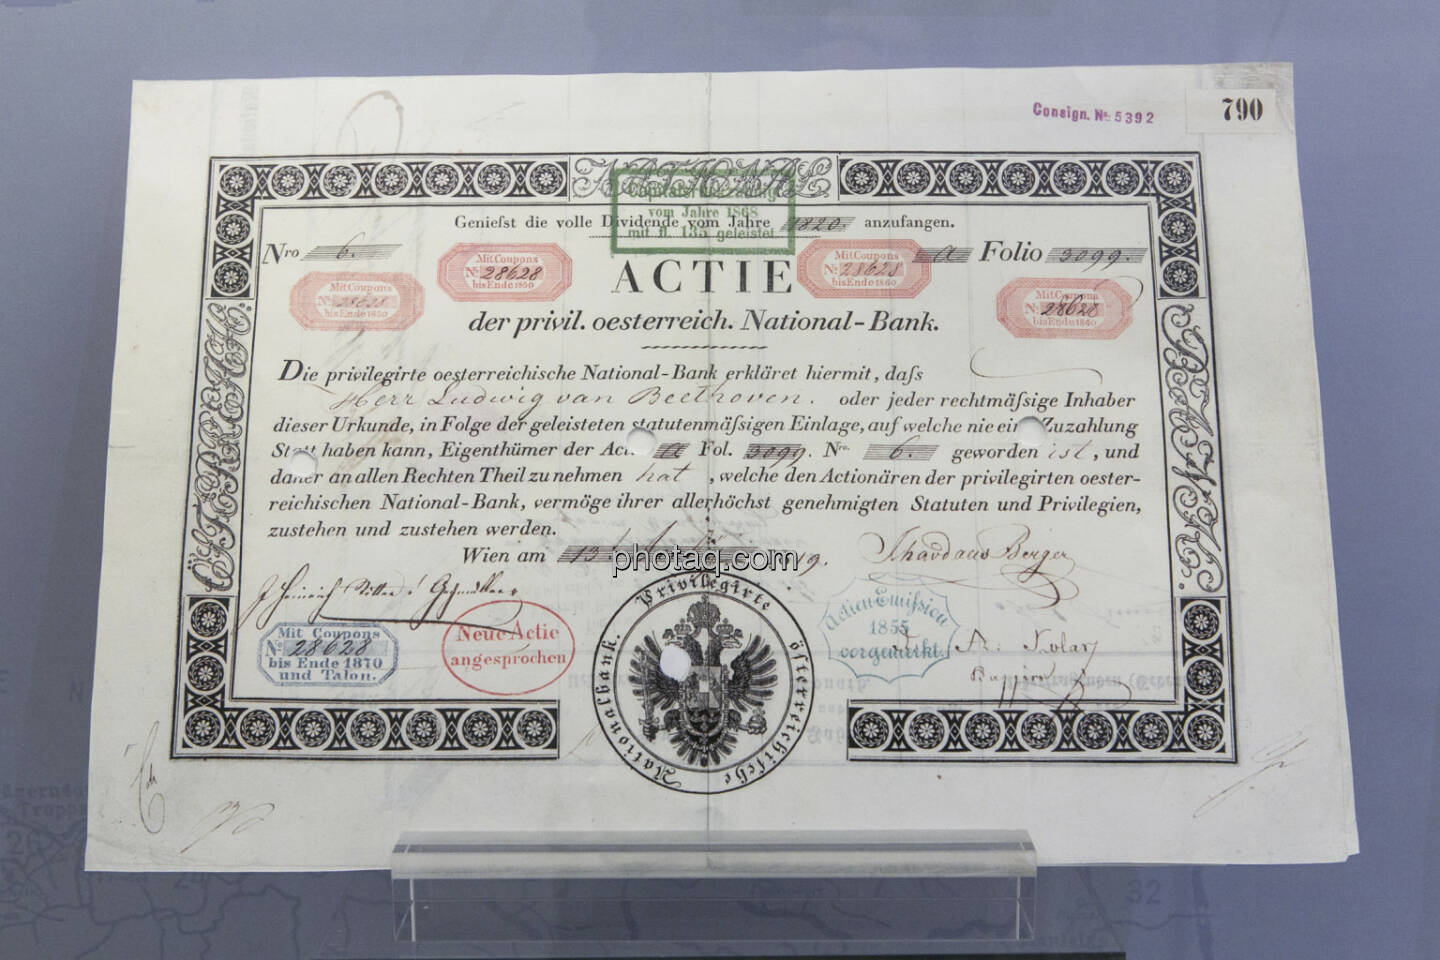 Consign. No. 5392
790
NATIONAL
Capitalsrückzahlung
vom Jahre 1868
mit fl. 135 geleistet
Geniefst die volle Dividende vom Jahre 1820. anzufangen.
Nro 6.
A Folio 3099.
Mit Coupons
No. 28628
bis Ende 1850
Mit Coupons
No. 28628
bis Ende 1850
Mit Coupons
No. 28628
bis Ende 1860
Mit Coupons
No. 28628
bis Ende 1840
ACTIE
der privil. oesterreich. National-Bank.
Die privilegirte oesterreichische National-Bank erkläret hiermit, dafs
Herr Ludwig van Beethoven. oder jeder rechtmäfsige Inhaber
dieser Urkunde, in Folge der geleisteten statutenmäfsigen Einlage, auf welche nie eine Zuzahlung
Statt haben kann, Eigenthümer der Act. A Fol. 3099. Nro. 6. geworden ist, und
daher an allen Rechten Theil zu nehmen hat, welche den Actionären der privilegirten oester-
reichischen National-Bank, vermöge ihrer allerhöchst genehmigten Statuten und Privilegien,
zustehen und zustehen werden.
Wien am 13. 1819.
photaq.com
Mit Coupons
No. 28628
bis Ende 1870
und Talon.
Neue Actie
angesprochen
Privilegirte österreichische Nationalbank.
Actien Emifsion
1855
vorgemerkt.
32